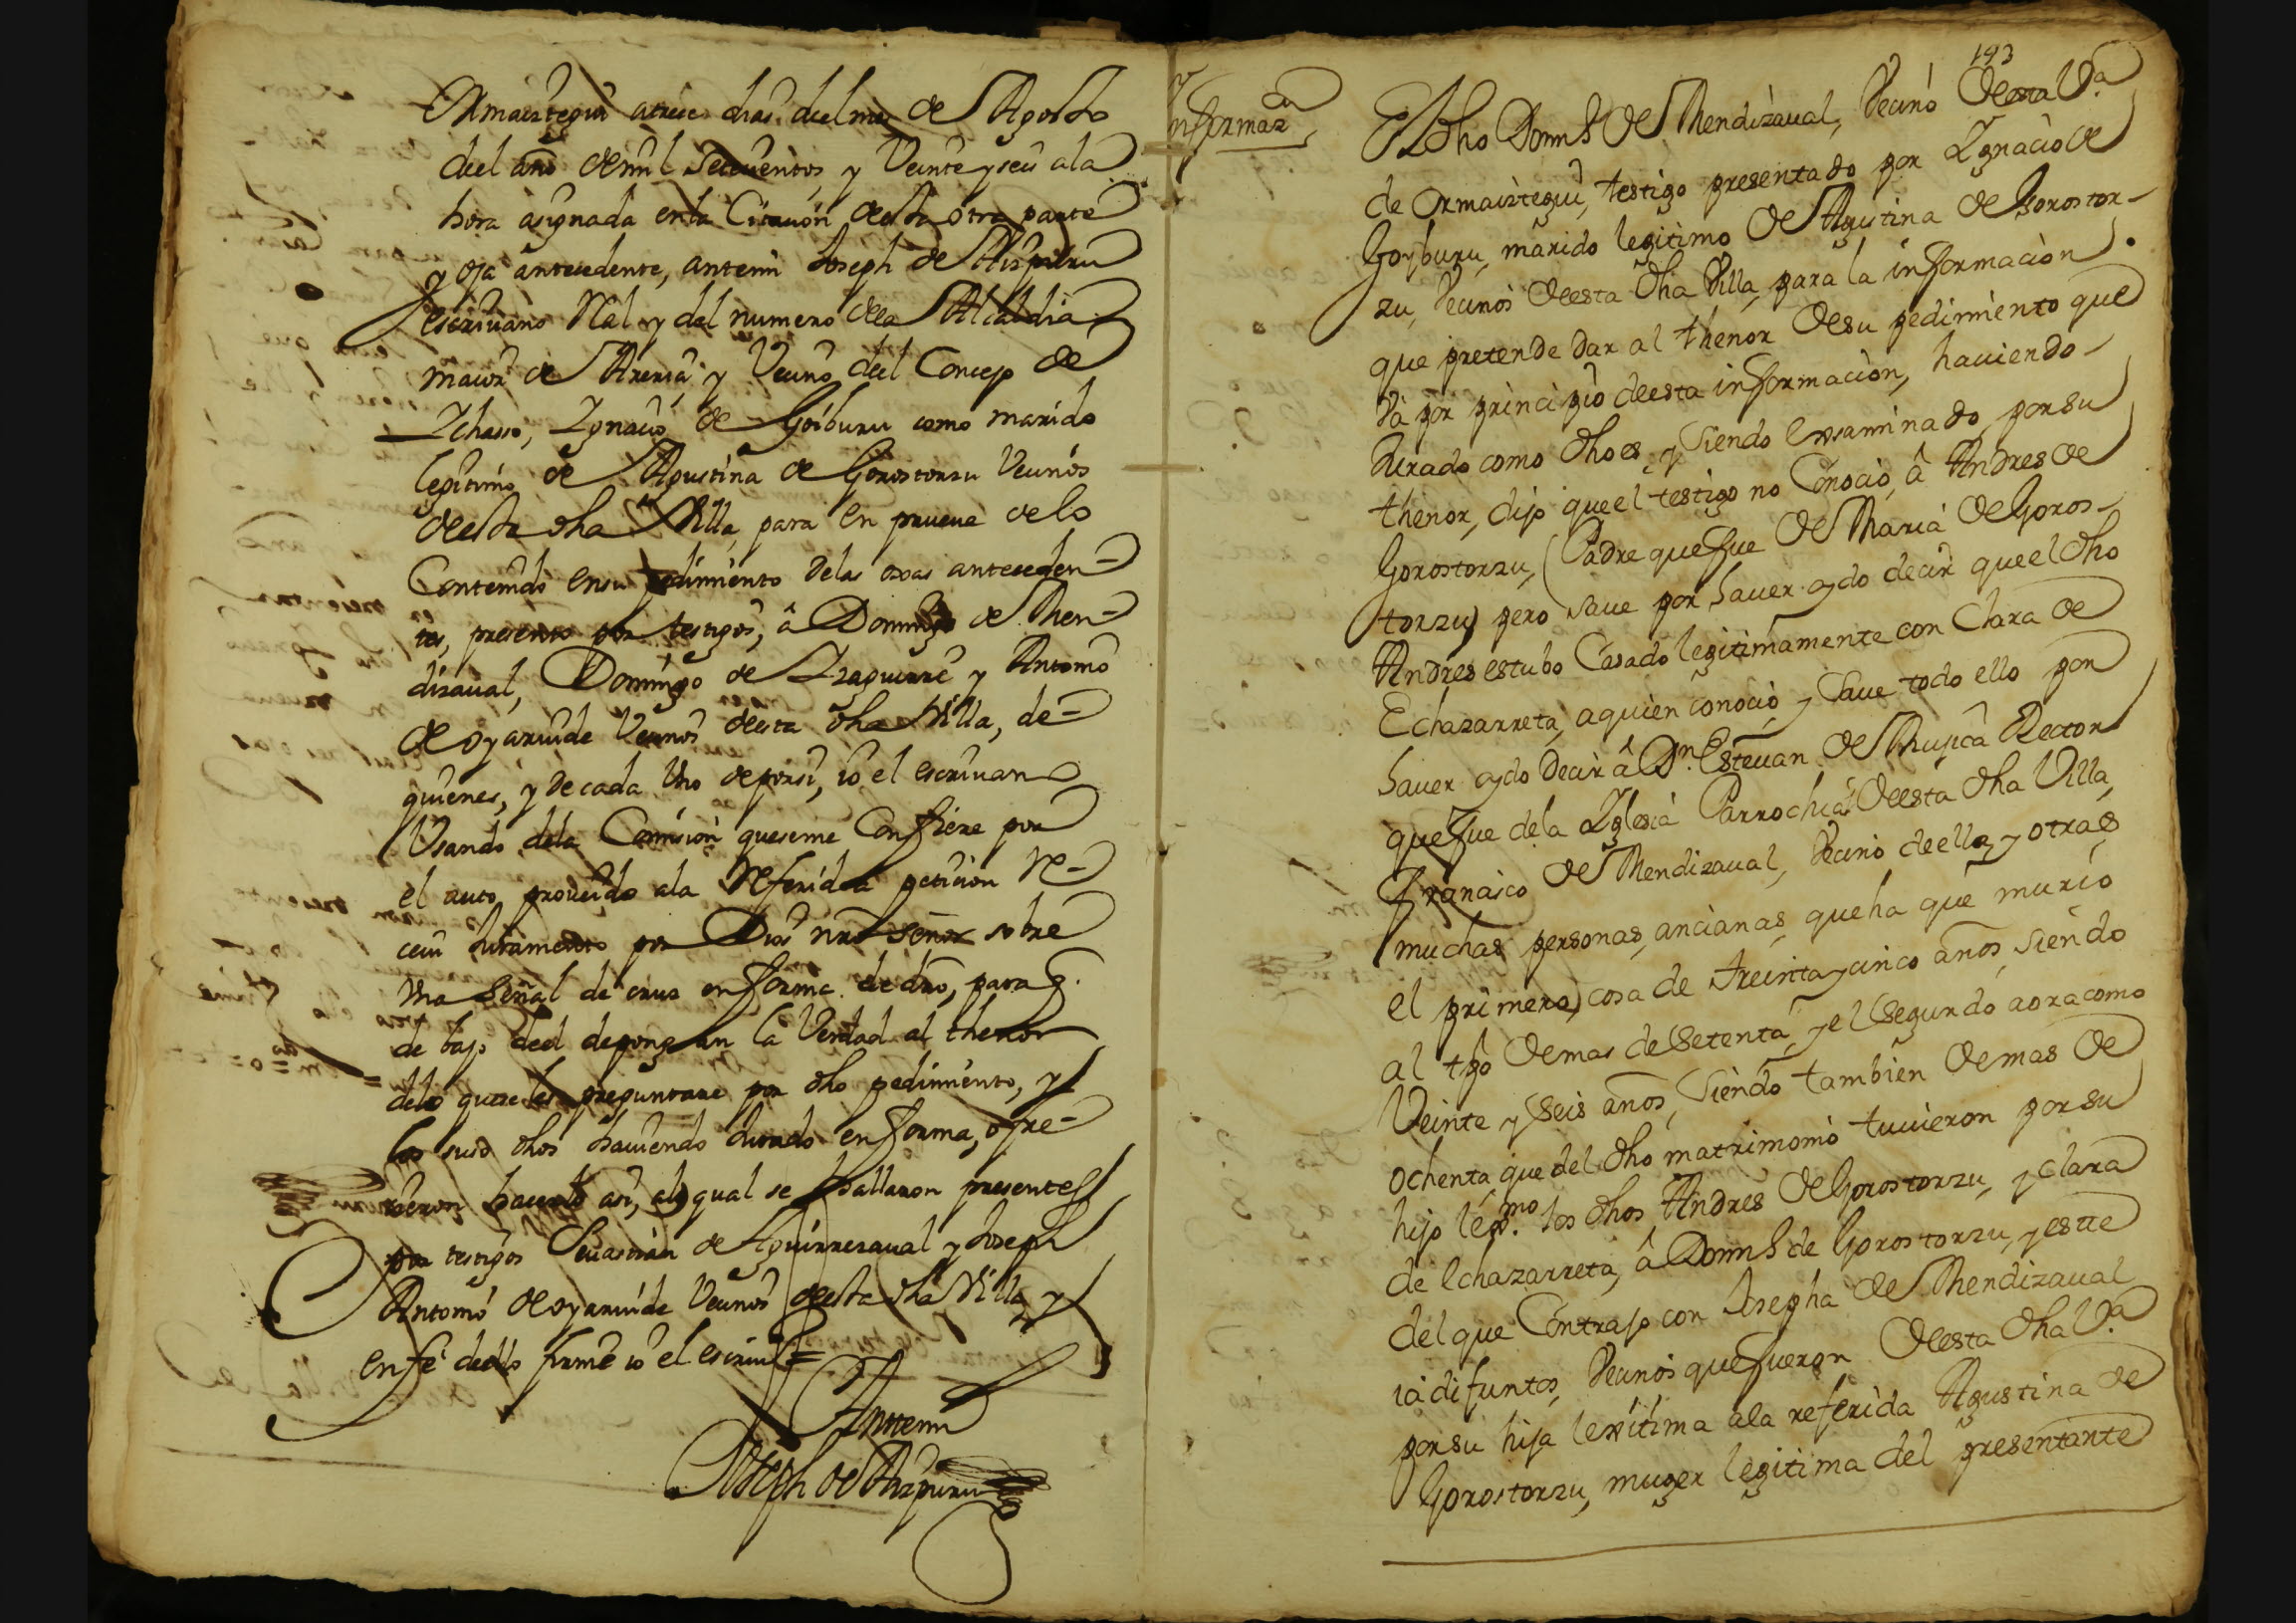 Ormaiztegui a trece dias del mes de Agosto
del año de mil setecientos y Veinte y seis ala
hora asignada en la Citacion desta otra parte
y oja antecedente, antemi Joseph de Aizpuru
escrivano Rl. y del numero dela Alcaldia
maior de Areria, y Vecino del Concejo de
Ychasso, Ygnacio de Goiburu como marido
legitimo de Agustina de Gorostorzu Vecinos
desta dha Villa, para en prueva delo
Contenido en su pedimiento delas oxas anteceden=
tes, presento por testigos, â Domingo de Men=
dizaval, Domingo de Yzaguirre y Antonio
de oyarvide Vecinos desta dha Villa, de=
quienes, y de cada Uno de por si, io el escrivano
Usando dela Comision que se me Confiere por
el auto proveido ala Referida peticion Re=
ceui Juramento por Dios nro Señor sobre
Una Señal de cruz en forma de dro, para q.
de bajo deel depongan la Verdad al thenor
delo que se les preguntare por dho pedimiento, y
los suso dhos haviendo Jurado en forma, ofre=
cieron hacerlo asi, alo qual se hallaron presentes
por testigos Sevastian de Aguirrezaval y Joseph
Antonio de oyarvide Vecinos desta dha Villa, y
en fe dello firme io el escriuo=
Antemi
Joseph de Aizpuru
193
Informaz.on
El dho Domi.o de Mendizaval, Vecino desta V.a
de Ormaiztegui, testigo presentado por Ygnacio de
Goyburu, marido legitimo de Agustina de Gorostor-
zu, Vecinos deesta dha Villa, para la informacion
que pretende dar al thenor desu pedimiento que
va por principio deesta informacion, haviendo-
Jurado como dho es, y siendo Exsaminado por su
thenor, dijo que el testigo no Conocio, â Andres de
Gorostorzu, (Padre que fue de Maria de Goros-
torzu) pero save por haver oydo decir que el dho
Andres estubo Casado legitimamente con Clara de
Echazarreta, aquien conocio, y Save todo ello por
haver oydo Decir â Dn. Estevan de Mujica Rector
que fue dela Yglesia Parrochial deesta dha Villa,
Francisco de Mendizaval, Vecino deella, y otras
muchas personas ancianas, que ha que murio
el primero, cosa de treinta y cinco años, siendo
al tpo de mas de Setenta, y el Segundo aora como
Veinte y Seis años, Siendo tambien de mas de
ochenta que del dho matrimonio tuvieron por su
hijo lex.mo los dhos Andres de Gorostorzu, y Clara
de Echazarreta, â Domi.o de Gorostorzu, y este
del que Contrajo con Josepha de Mendizaval
ia difuntos, Vecinos que fueron deesta dha V.a
por su hija lexitima ala referida Agustina de
Gorostorzu, muger legitima del presentante